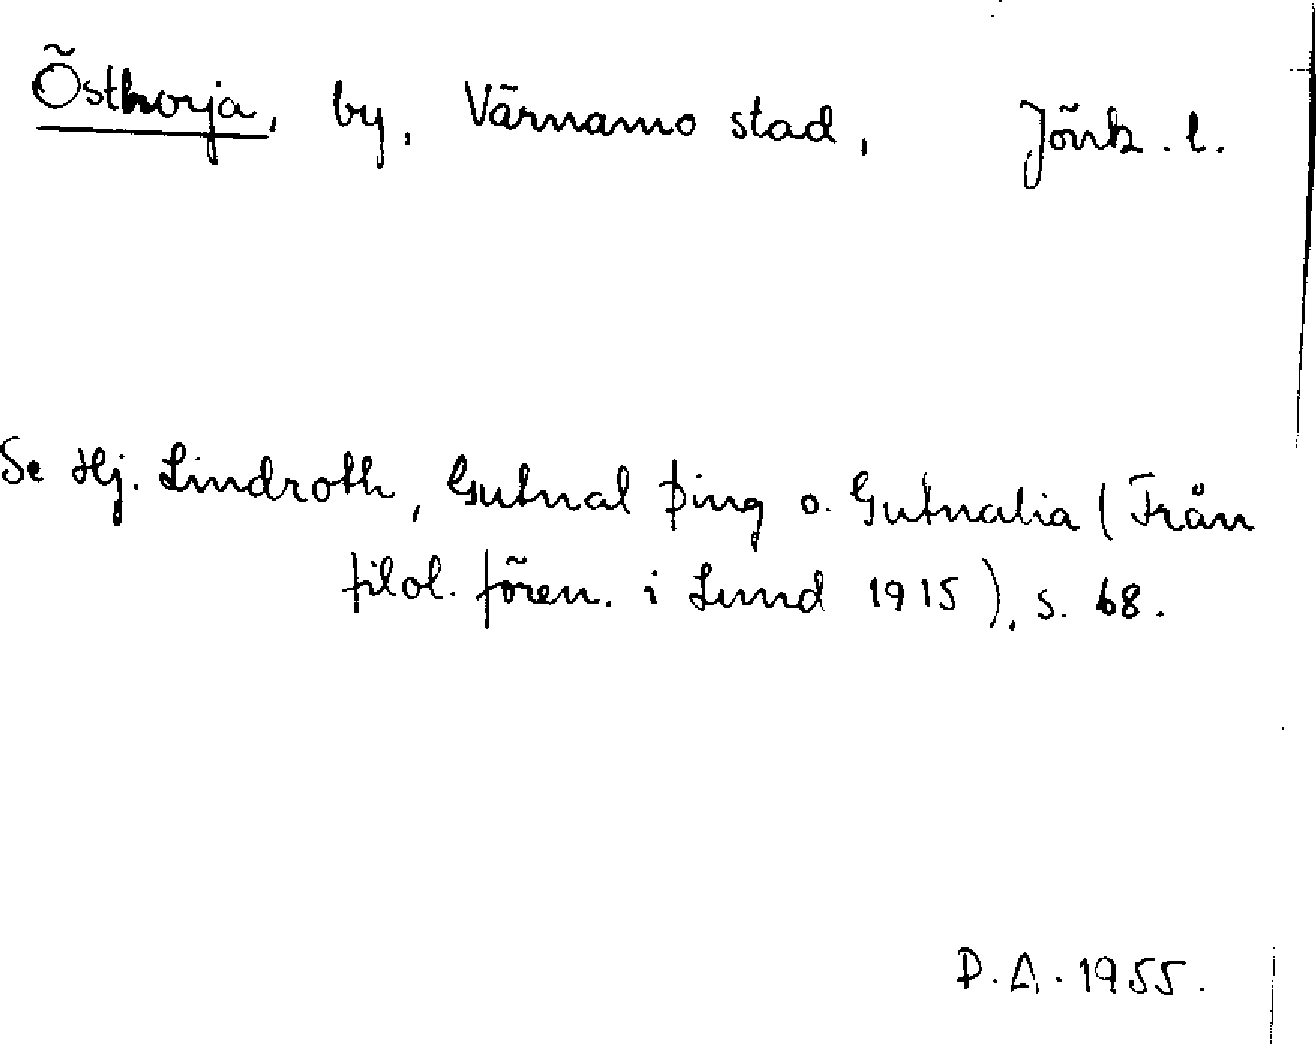 Östhorja, by, Värnamo stad, Jönk. l.
Se Hj. Lindroth, Gutnal þing o. Gutnalia (Från
filol. fören. i Lund 1915), s. 68.
D. A. 1955.